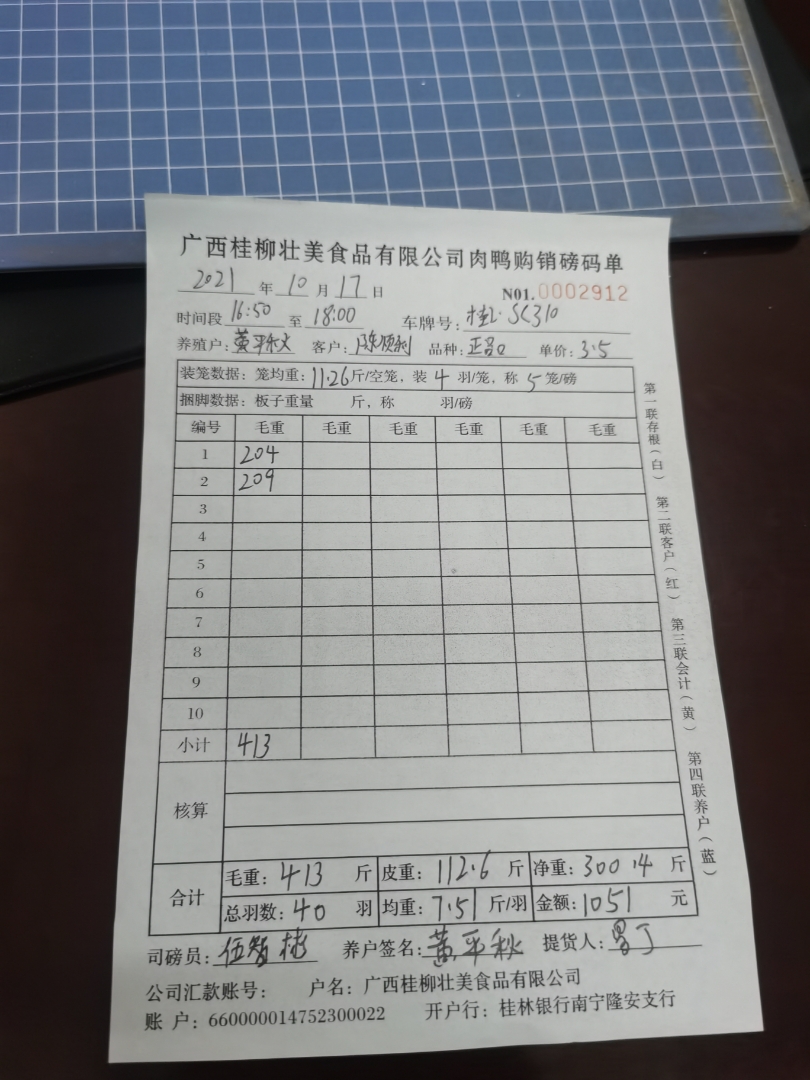 广西桂柳壮美食品有限公司肉鸭购销磅码单
2021 年 10 月 17 日 N01.0002912
时间段 16:50 至 18:00 车牌号: SC310
养殖户: 黄平秋 客户: 品种: 单价: 3.5
装笼数据: 笼均重: 11.26 斤/空笼, 装 4 羽/笼, 称 5 笼/磅
捆脚数据: 板子重量 斤, 称 羽/磅
编号 毛重 毛重 毛重 毛重 毛重 毛重
1 204
2 209
3
4
5
6
7
8
9
10
小计 413
核算
合计
毛重: 413 斤 皮重: 112.6 斤 净重: 300.4 斤
总羽数: 40 羽 均重: 7.51 斤/羽 金额: 1051 元
司磅员: 养户签名: 黄平秋 提货人:
公司汇款账号: 户名: 广西桂柳壮美食品有限公司
账 户: 660000014752300022 开户行: 桂林银行南宁隆安支行
第一联存根(白) 第二联客户(红) 第三联会计(黄) 第四联养户(蓝)